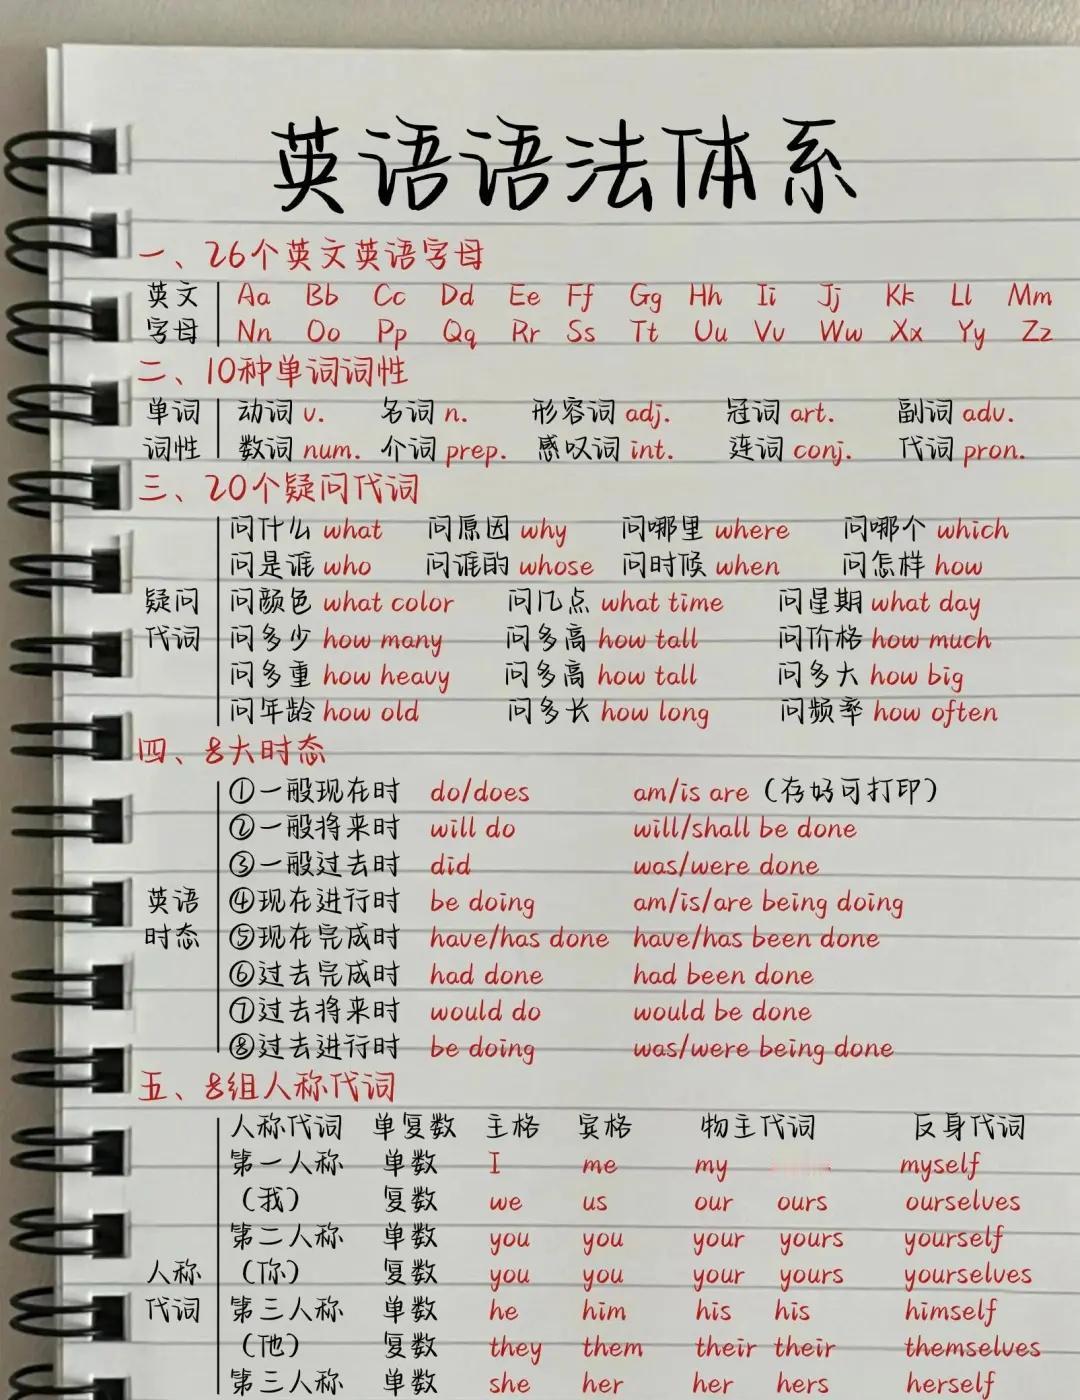 英语语法体系
一、26个英文英语字母
英文 Aa Bb Cc Dd Ee Ff Gg Hh Ii Jj Kk Ll Mm
字母 Nn Oo Pp Qq Rr Ss Tt Uu Vv Ww Xx Yy Zz
二、10种单词词性
单词 动词 v. 名词 n. 形容词 adj. 冠词 art. 副词 adv.
词性 数词 num. 介词 prep. 感叹词 int. 连词 conj. 代词 pron.
三、20个疑问代词
问什么 what 问原因 why 问哪里 where 问哪个 which
问是谁 who 问谁的 whose 问时候 when 问怎样 how
疑问 问颜色 what color 问几点 what time 问星期 what day
代词 问多少 how many 问多高 how tall 问价格 how much
问多重 how heavy 问多高 how tall 问多大 how big
问年龄 how old 问多长 how long 问频率 how often
四、8大时态
①一般现在时 do/does am/is are（存好可打印）
②一般将来时 will do will/shall be done
③一般过去时 did was/were done
英语 ④现在进行时 be doing am/is/are being doing
时态 ⑤现在完成时 have/has done have/has been done
⑥过去完成时 had done had been done
⑦过去将来时 would do would be done
⑧过去进行时 be doing was/were being done
五、8组人称代词
人称代词 单复数 主格 宾格 物主代词 反身代词
第一人称 单数 I me my myself
（我） 复数 we us our ours ourselves
第二人称 单数 you you your yours yourself
人称 （你） 复数 you you your yours yourselves
代词 第三人称 单数 he him his his himself
（他） 复数 they them their their themselves
第三人称 单数 she her her hers herself